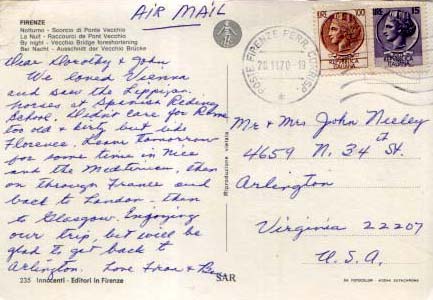 AIR MAIL
FIRENZE
Notturno - Scorcio di Ponte Vecchio
La Nuit - Raccourci de Pont Vecchio
By night - Vecchio Bridge foreshortening
Bei Nacht - Ausschnitt der Vecchio Brücke
Dear Dorothy & John,
We loved Vienna
and saw the Lippizan
horses at Spanish Riding
School. Didn't care for Rome
too old & dirty but like
Florence. Leave tomorrow
for some time in Nice
and the , then
on through France and
back to London - then
to Glasgow. Enjoying
our trip, but will be
glad to get back to
Arlington. Love Fran &
235 Innocenti - Editori in Firenze
SAR
Riproduzione vietata
LIRE 100
LIRE 15
POSTE FIRENZE FERR. CORRISP
20.11.70-19
Mr & Mrs John Neeley
4659 N. 34 St.
Arlington
Virginia 22207
U.S.A.